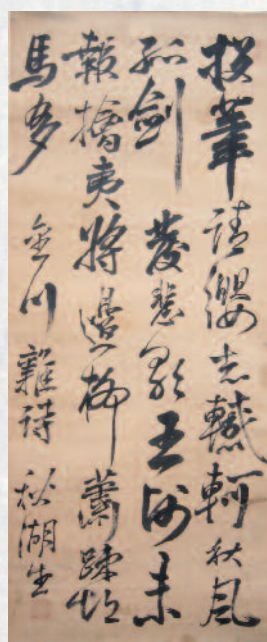 投筆請纓志轗軻秋風
孤劍發悲歌王師未
報擒夷將邊柳蕭疎
馬多 金川雜詩 湖生